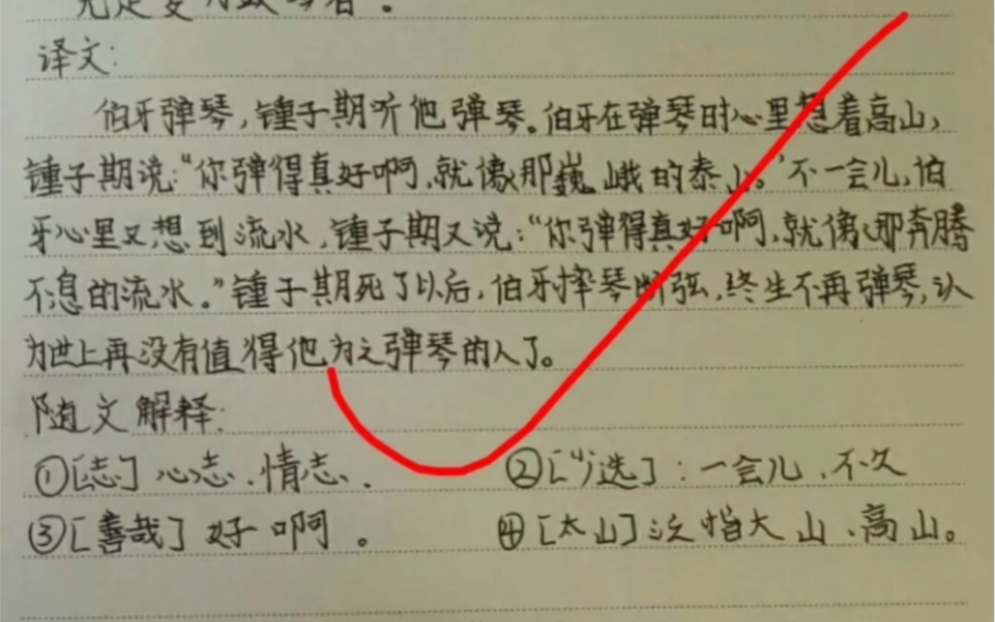 译文:
伯牙弹琴,锺子期听他弹琴。伯牙在弹琴时心里想着高山,
锺子期说:“你弹得真好啊,就像那巍峨的泰山。”不一会儿,伯
牙心里又想到流水,锺子期又说:“你弹得真好啊,就像那奔腾
不息的流水。”锺子期死了以后,伯牙摔琴断弦,终生不再弹琴,认
为世上再没有值得他为之弹琴的人了。
随文解释:
①[志]心志、情志. ②[少选]:一会儿、不久
③[善哉]好啊。 ④[太山]泛指大山、高山。